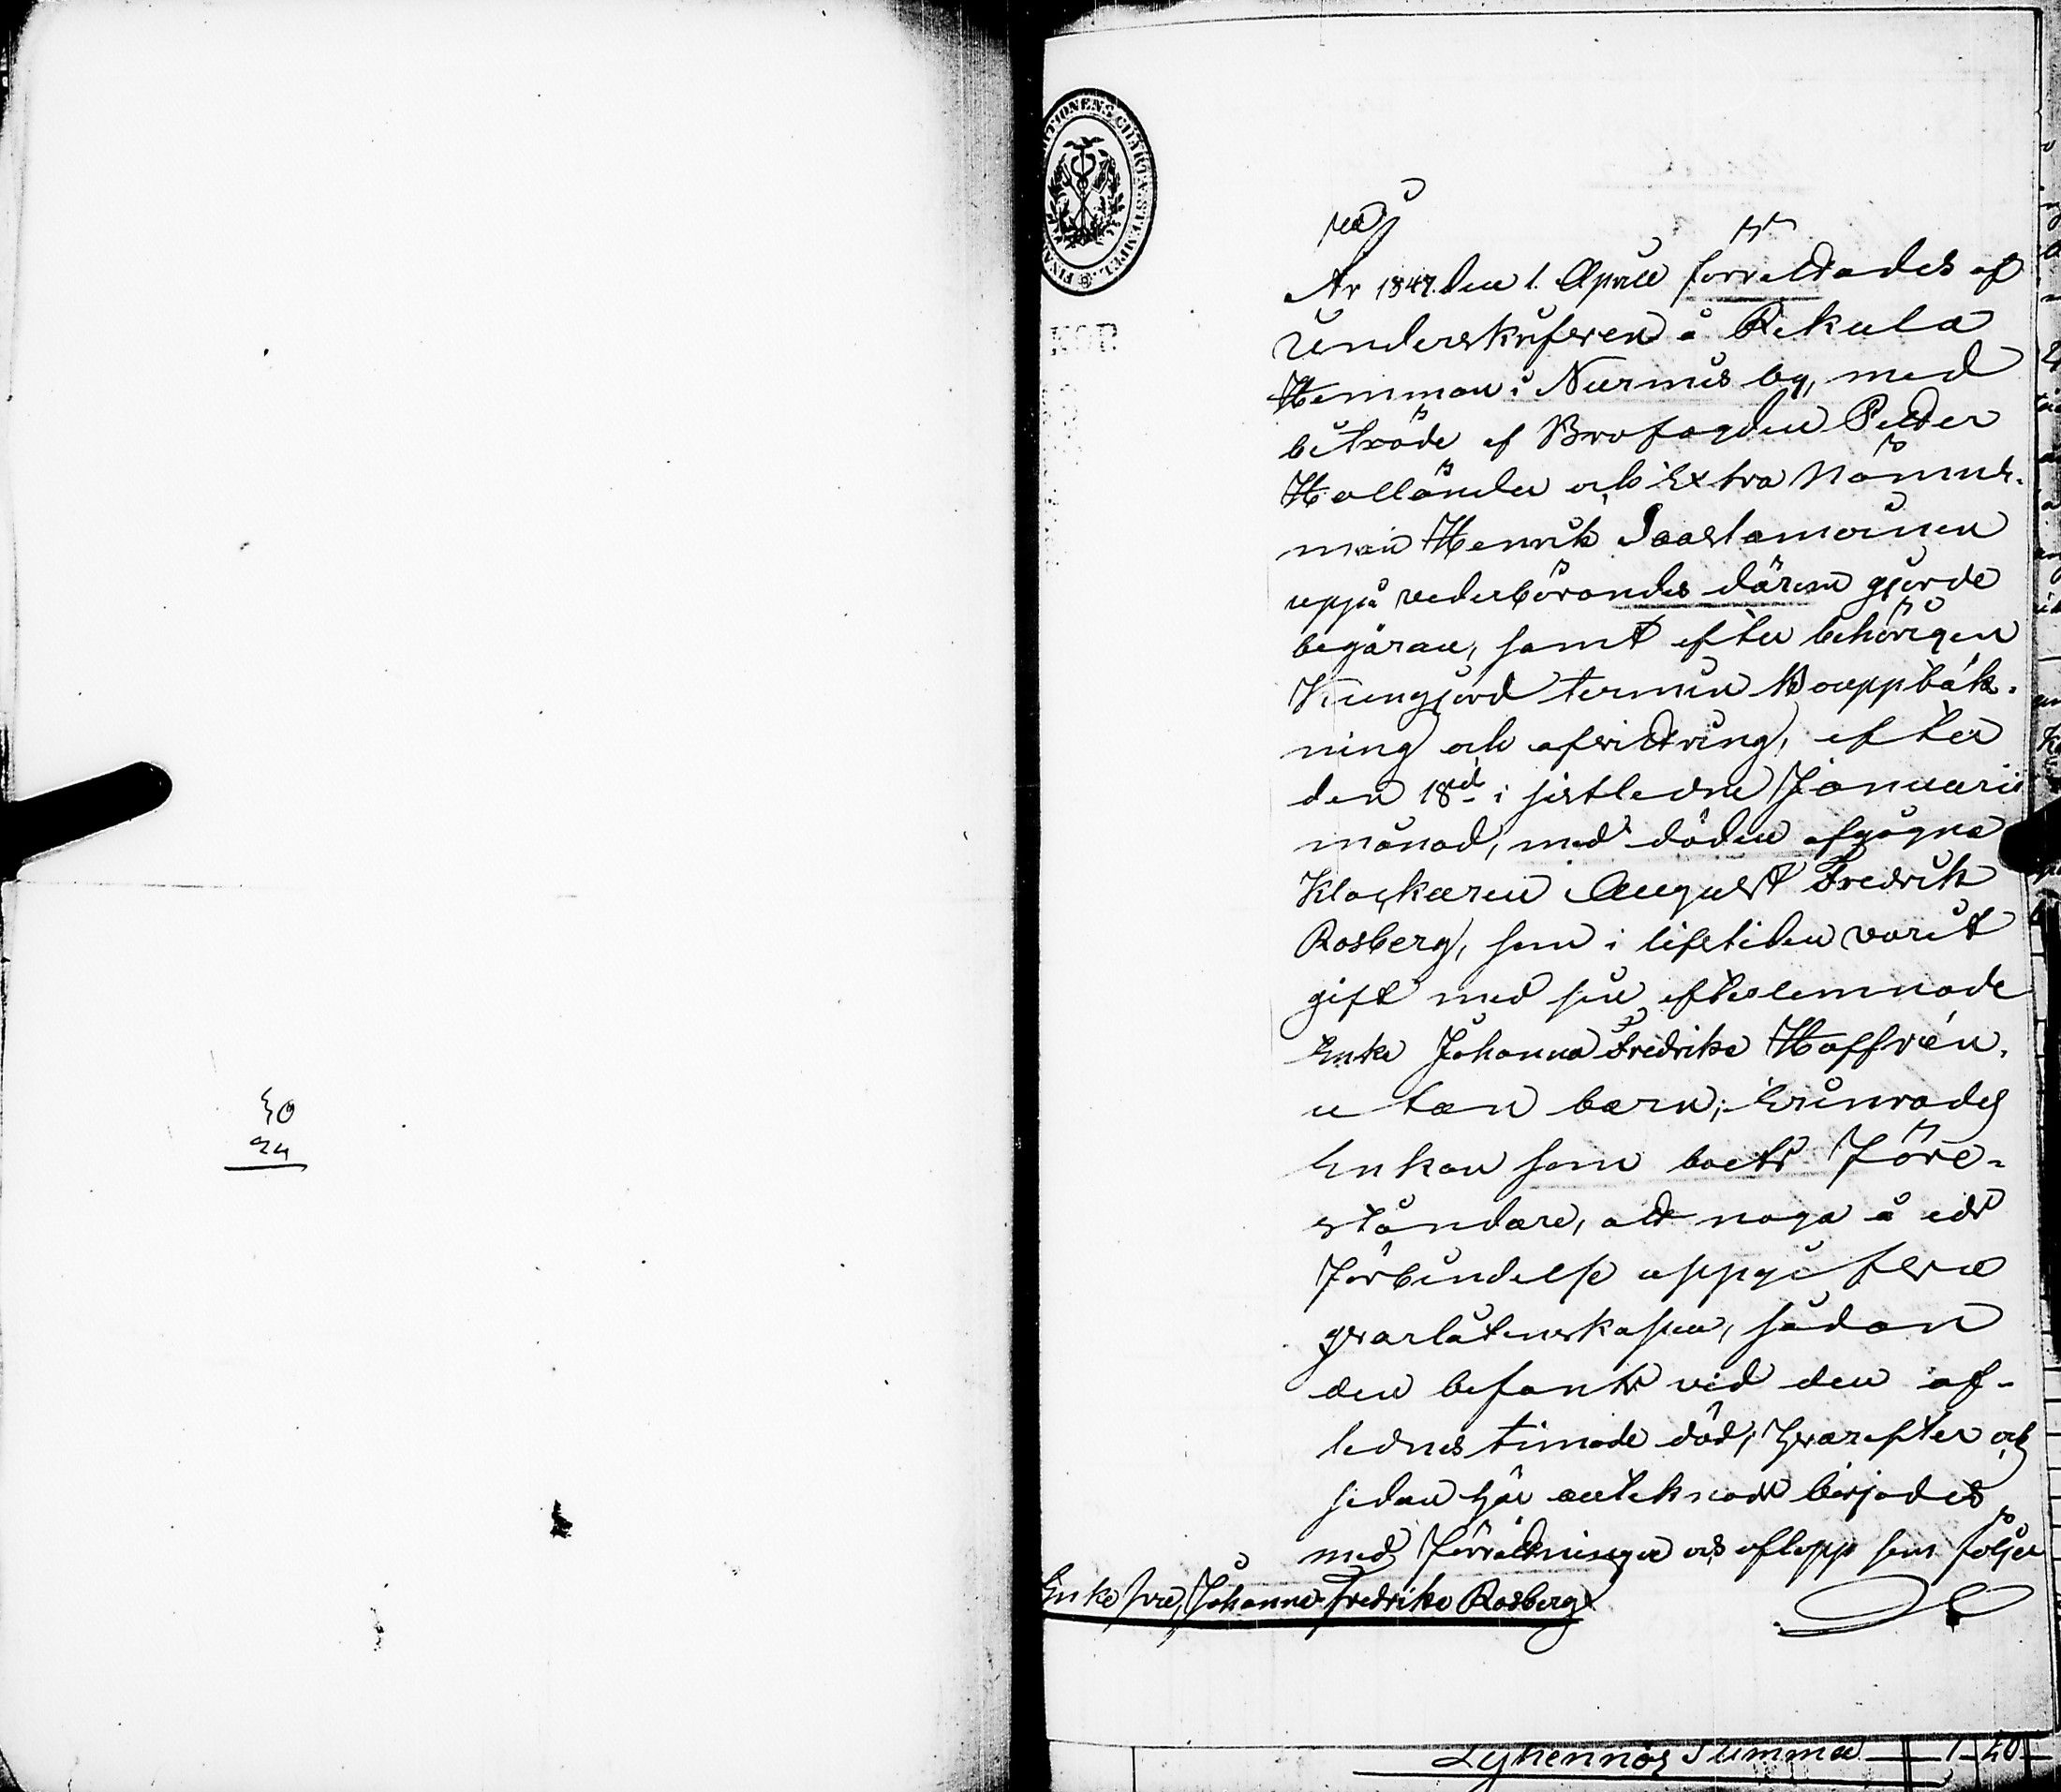 År 1847. den 1. Aprill förrättades af
underskrifven å Rekula
Hemman i Nurmis by, med
biträde af Brofogden Petter
Holländer och Extra Nämnde-
man Henrik Saastamoinen
uppå vederbörandes därom gjorde
begäran, samt efter behörigen
Kungjord termin Bouppteck-
ning och afvittring, efter
den 18de i sistledne Januarii
månad, med döden afgågne
Klockaren August Fredrik
Rosberg, som i lifstiden varit
gift med sin efterlemnade
Enka Johanna Fredrika Hoffrén,
utan barn; Erinrades
Enkan som boets Före-
ståndare, att noga å eds
förbindelse uppgifva
qvarlåtenskapen, sådan
den befants vid den af-
lednes timade död; Hvarefter och
sedan här antecknadt börjades
med förrättningen och aflopp som följer
Enke fru, Johanna Fredrika Rosberg
50
24
FINANS EXPEDITIONENS CHARTÆ STEMPEL
KOP.
Lyhennös Summa 1 40